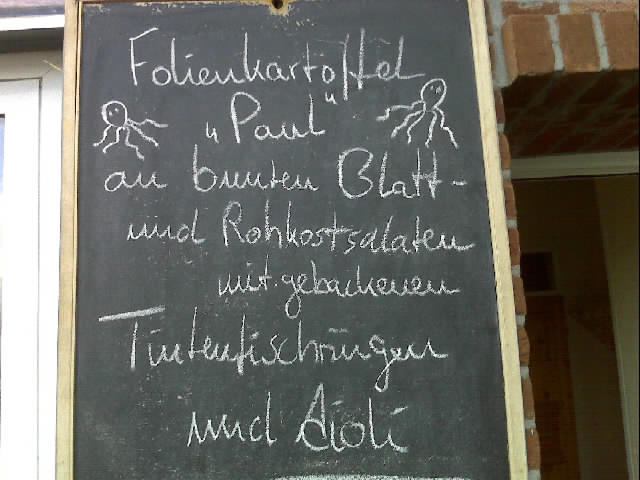 Folienkartoffel
„Paul“
an bunten Blatt-
und Rohkostsalaten
mit gebackenen
Tintenfischringen
und Aioli